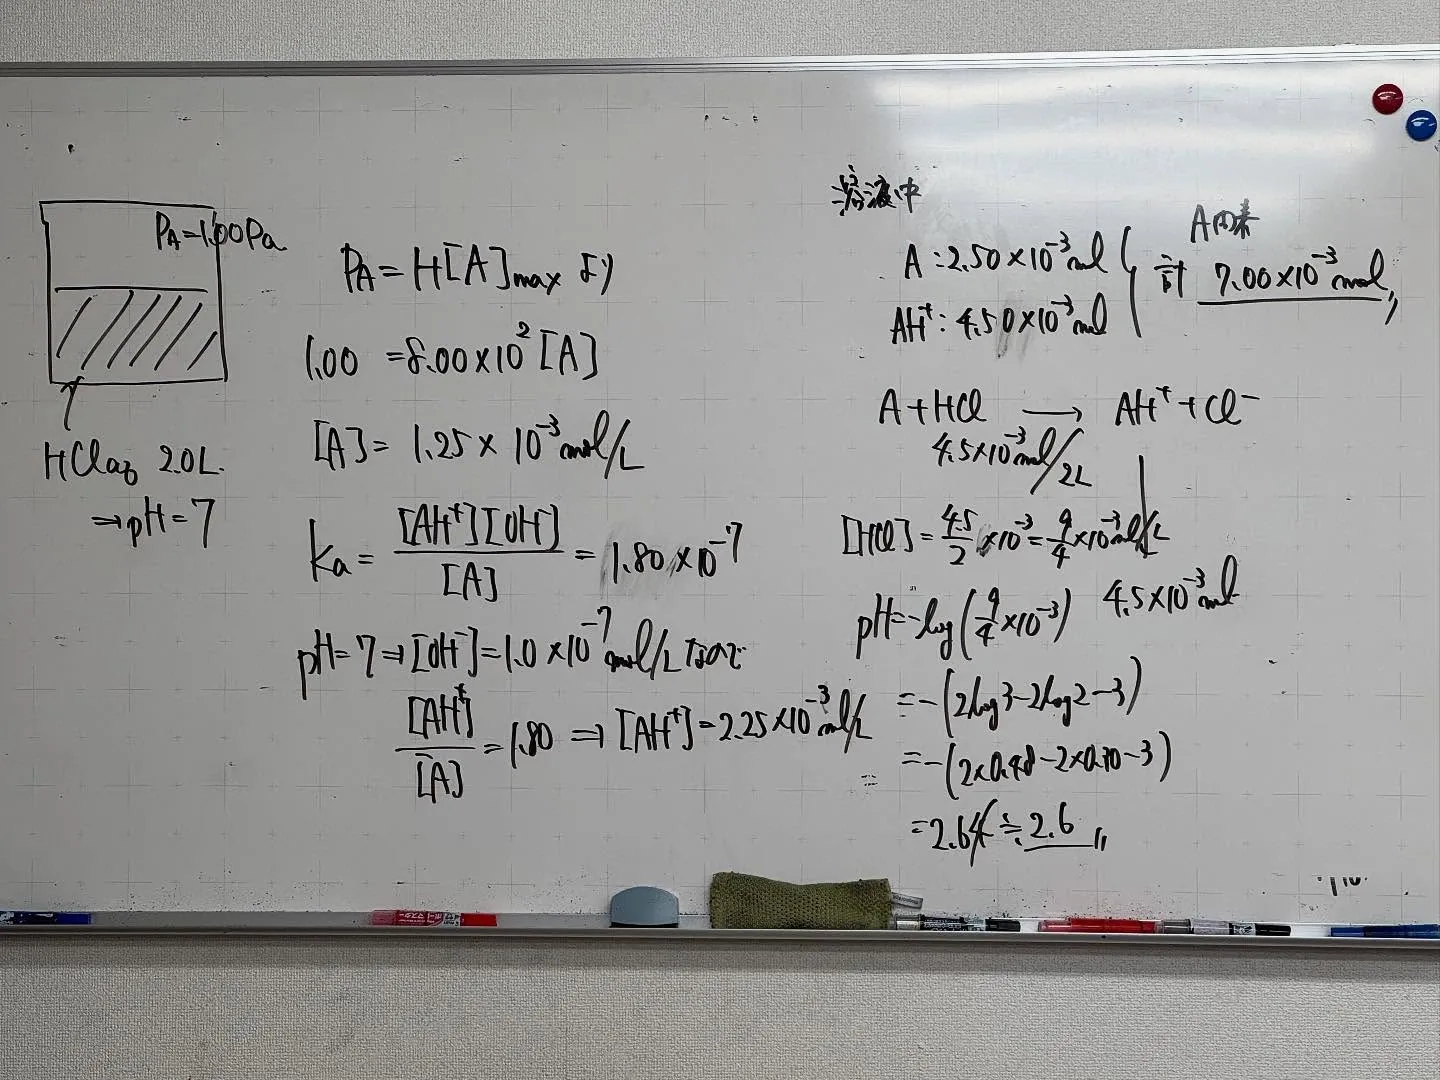 PA=1.00Pa
HClaq 2.0L
⇒pH=7
PA=H[A]max より
1.00 =8.00×10² [A]
[A]= 1.25×10⁻³mol/L
Ka= [AH⁺][OH⁻]/[A] = 1.80×10⁻⁷
pH=7⇒[OH⁻]=1.0×10⁻⁷mol/Lなので
[AH⁺]/[A] =1.80 ⇒ [AH⁺]=2.25×10⁻³mol/L
溶液中
A:2.50×10⁻³mol
AH⁺:4.50×10⁻³mol
A由来
計 7.00×10⁻³mol〃
A+HCl → AH⁺+Cl⁻
4.5×10⁻³mol/2L
4.5×10⁻³mol
[HCl]=4.5/2×10⁻³=9/4×10⁻³mol/L
pH=-log(9/4×10⁻³)
=-(2log3-2log2-3)
=-(2×0.48-2×0.30-3)
=2.64≒2.6〃